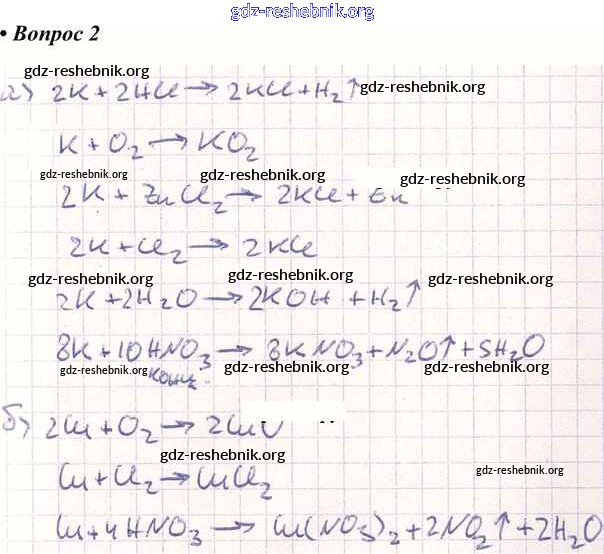 gdz-reshebnik.org
• Вопрос 2
gdz-reshebnik.org
а) 2K + 2HCl → 2KCl + H₂↑ gdz-reshebnik.org
K + O₂ → KO₂
gdz-reshebnik.org gdz-reshebnik.org
2K + ZnCl₂ → 2KCl + Zn
2K + Cl₂ → 2KCl
gdz-reshebnik.org gdz-reshebnik.org gdz-reshebnik.org
2K + 2H₂O → 2KOH + H₂↑
8K + 10HNO₃ → 8KNO₃ + N₂O↑ + 5H₂O
gdz-reshebnik.org конц. gdz-reshebnik.org gdz-reshebnik.org
б) 2Cu + O₂ → 2CuO
gdz-reshebnik.org
Cu + Cl₂ → CuCl₂
gdz-reshebnik.org
Cu + 4HNO₃ → Cu(NO₃)₂ + 2NO₂↑ + 2H₂O